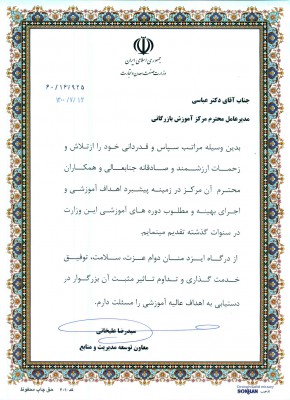 جمهوری اسلامی ایران
وزارت صنعت، معدن و تجارت
۶۰/۱۶/۹۲۵
۱۴۰۰/۷/۱۲
جناب آقای دکتر عباسی
مدیرعامل محترم مرکز آموزش بازرگانی
بدین وسیله مراتب سپاس و قدردانی خود را ازتلاش و
زحمات ارزشمند و صادقانه جنابعالی و همکاران
محترم آن مرکز در زمینه پیشبرد اهداف آموزشی و
اجرای بهینه و مطلوب دوره های آموزشی این وزارت
در سنوات گذشته تقدیم مینمایم.
از درگاه ایزد منان دوام عزت، سلامت، توفیق
خدمت گذاری و تداوم تاثیر مثبت آن بزرگوار در
دستیابی به اهداف عالیه آموزشی را مسئلت دارم.
سیدرضا علیخانی
معاون توسعه مدیریت و منابع
حق چاپ محفوظ